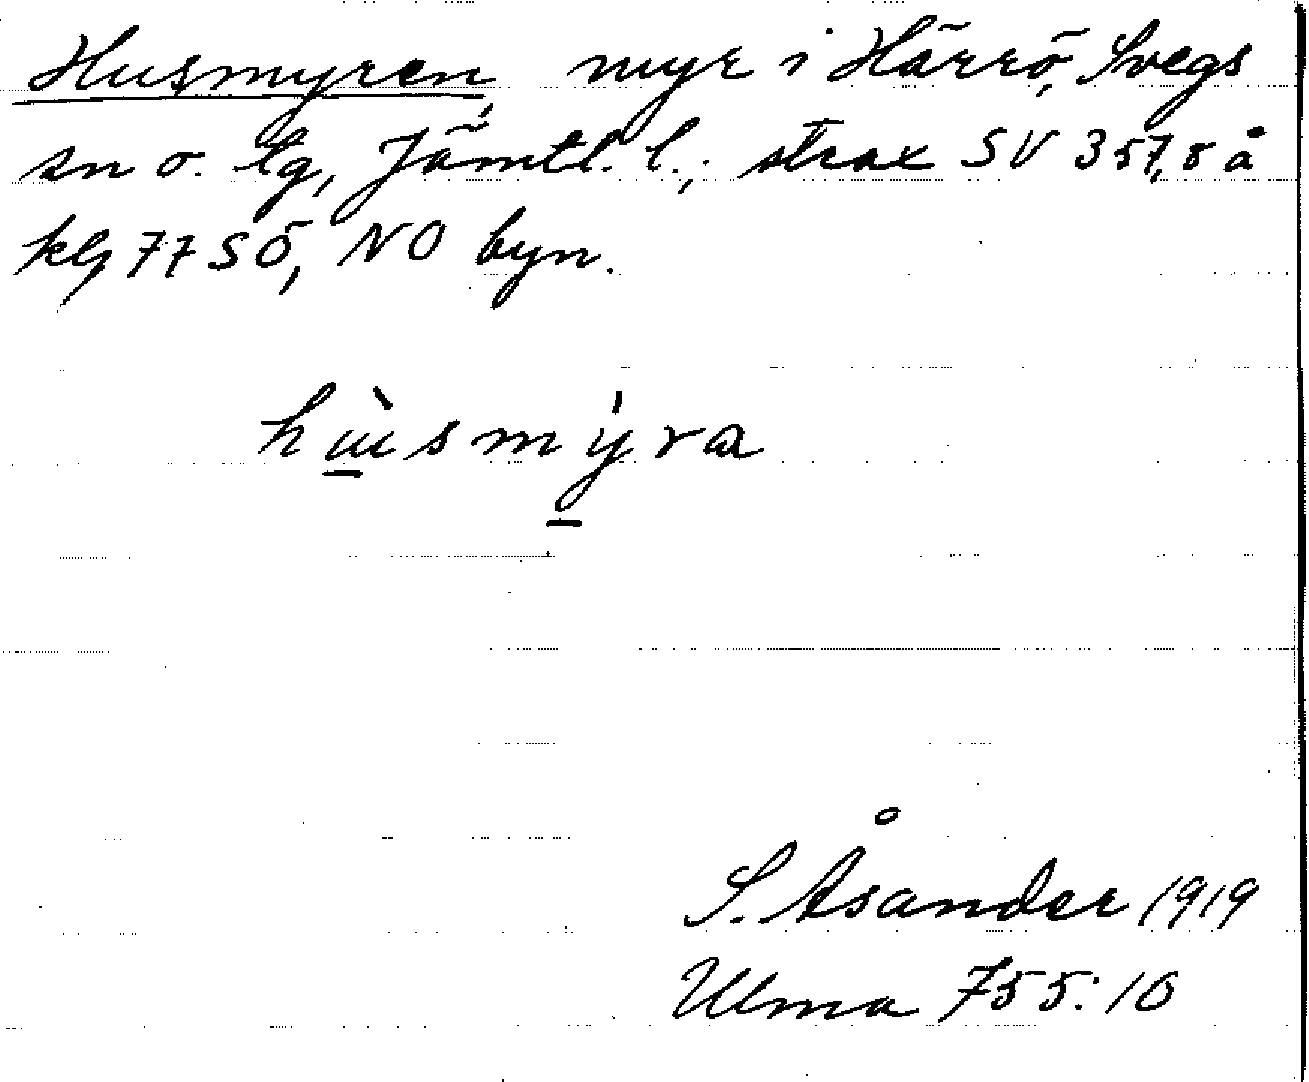 Husmyren, myr i Härrö, Svegs
sn o. tg, Jämtl. l.; strax SV 357,8 å
kbl 77 SÖ, NO byn.
hùsmýra
S. Åsander 1919
Ulma 755:10